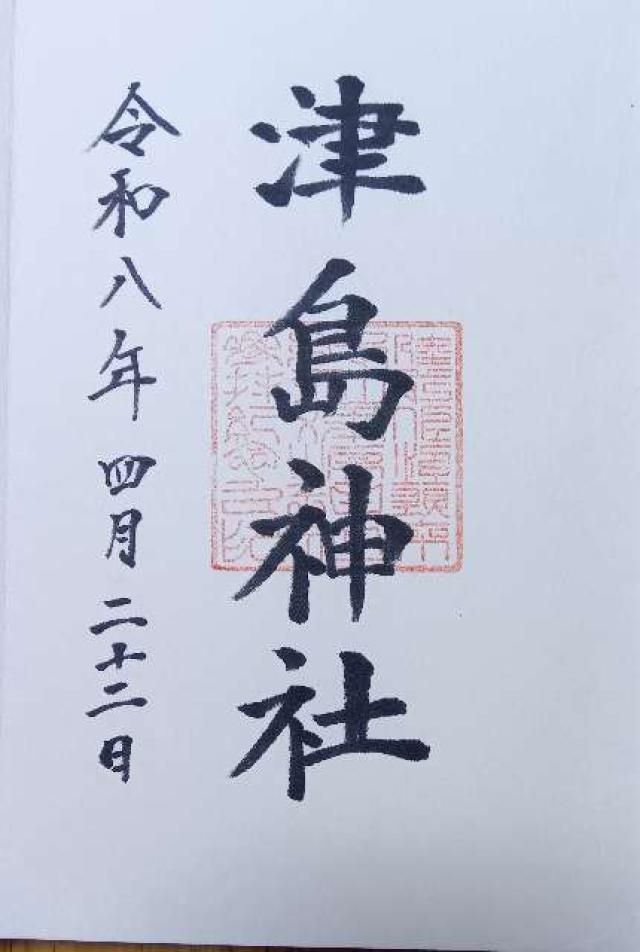 津島神社
令和八年四月二十二日